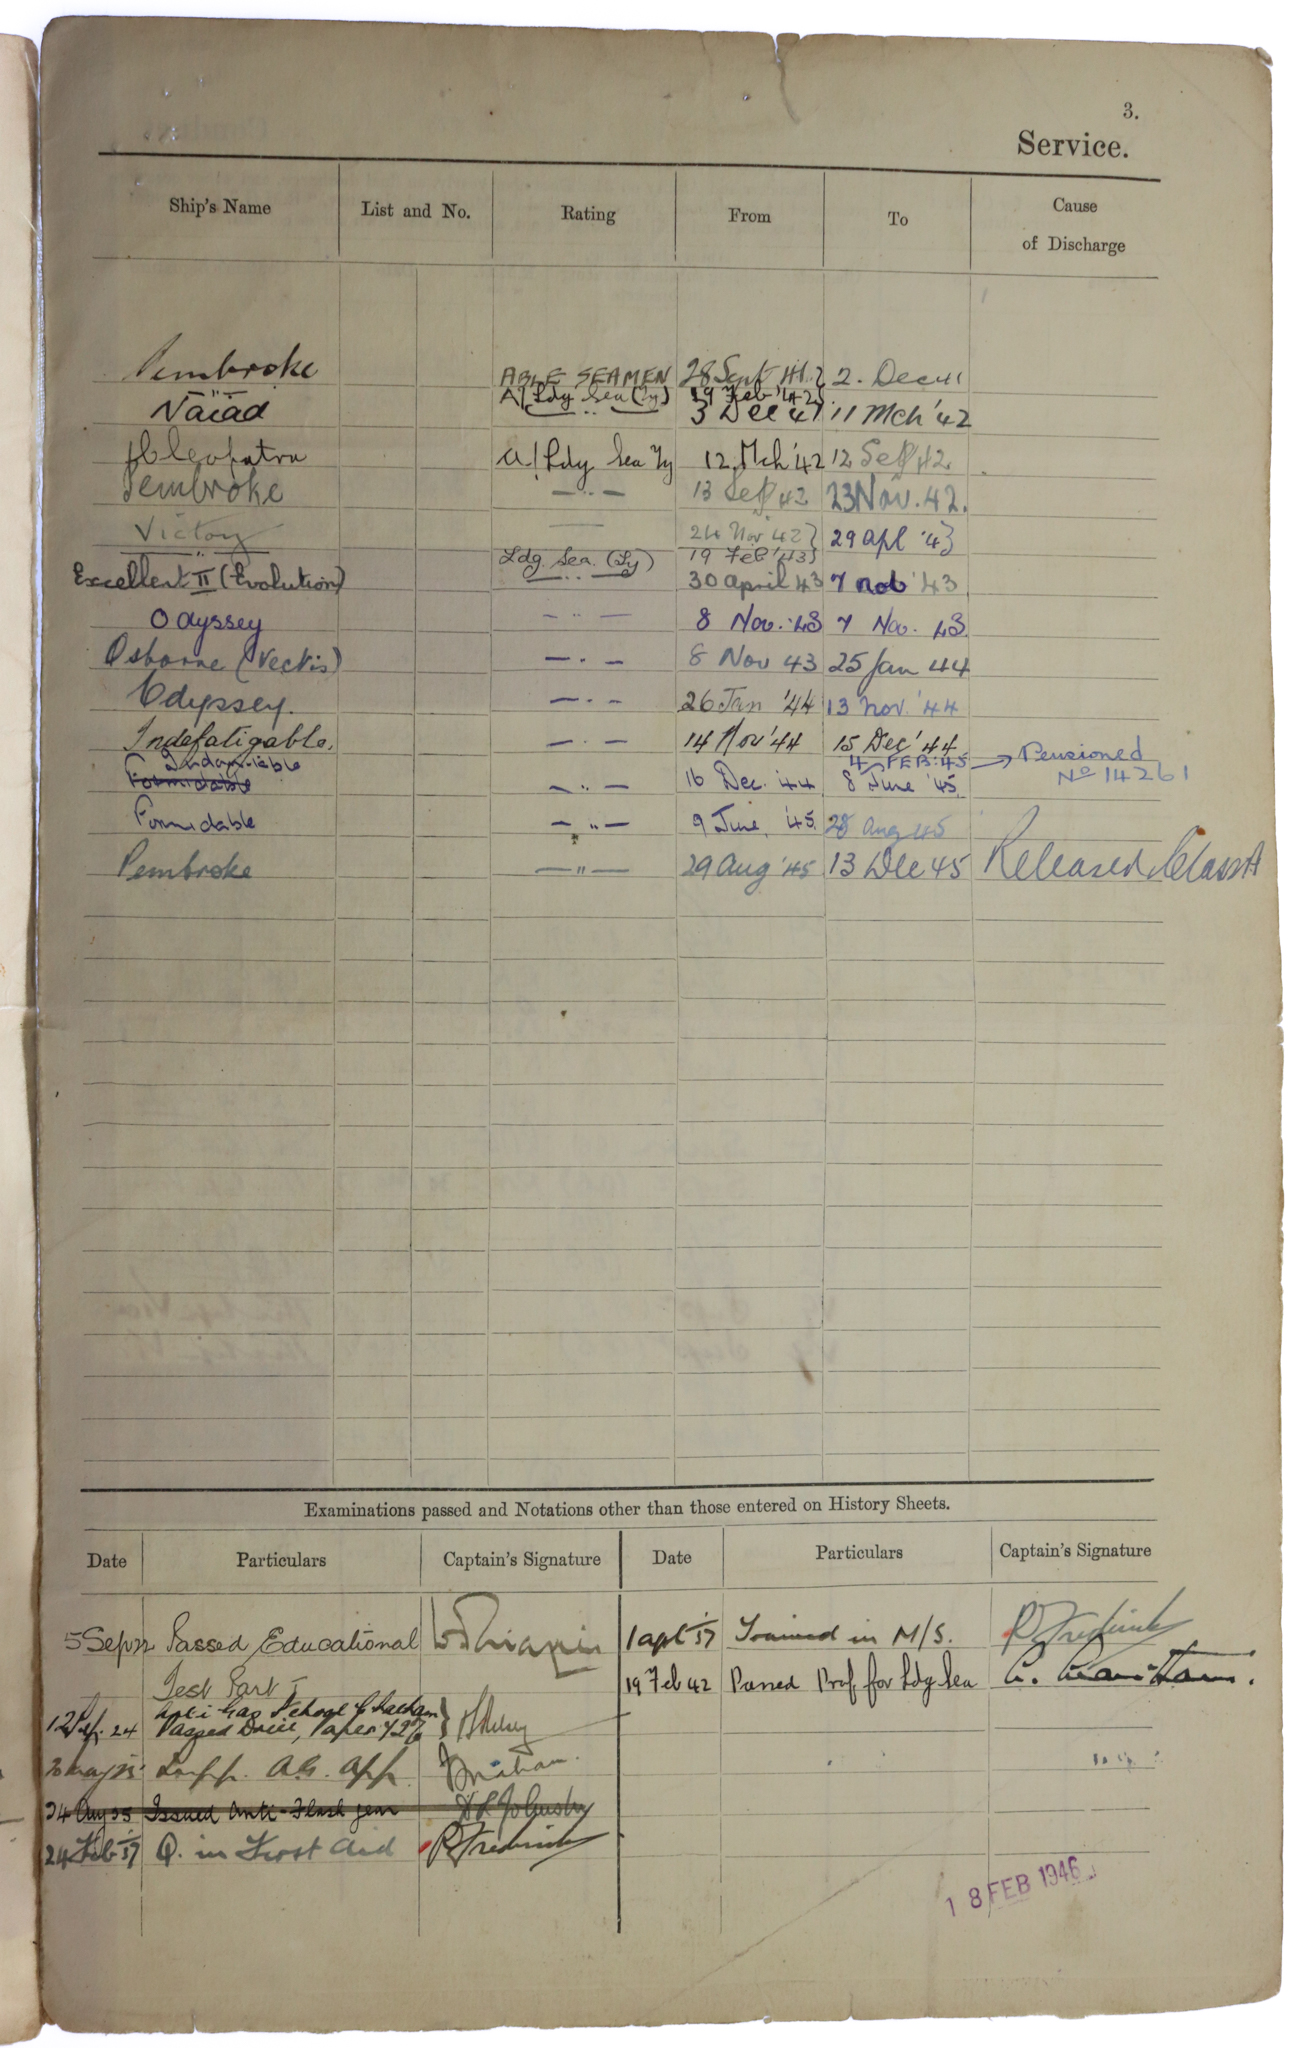 3.
Service.
Ship's Name List and No. Rating From To Cause of Discharge
Pembroke ABLE SEAMEN 28 Sept 41. 2. Dec 41
" A/Ldg Sea (Ty) 19 Feb '42
Naiad — " — 3 Dec 41 11 Mch '42
Cleopatra A/Ldg Sea Ty 12 Mch '42 12 Sep 42.
Pembroke — " — 13 Sep 42 23 Nov. 42.
Victory — 24 Nov 42} 29 Apl '43
— " — Ldg. Sea. (Ty) 19 Feb '43}
Excellent II (Evolution) — " — 30 April 43 7 Nov '43
Odyssey — " — 8 Nov. 43 7 Nov. 43.
Osborne (Vectis) — " — 8 Nov 43 25 Jan 44
Odyssey. — " — 26 Jan '44 13 Nov. '44
Indefatigable. — " — 14 Nov '44 15 Dec '44
Indomitable 4 FEB: 45 → Pensioned
Formidable — " — 16 Dec. 44 8 June '45. No 14261
Formidable — " — 9 June, '45. 28 Aug 45
Pembroke — " — 29 Aug '45 13 Dec 45 Released Class A
Examinations passed and Notations other than those entered on History Sheets.
Date Particulars Captain's Signature Date Particulars Captain's Signature
5 Sep 22 Passed Educational 1 Apl 37 Trained in M/S. R Frederick
Test Part I 19 Feb 42 Passed Prof for Ldg Sea
12 Sep. 24 Anti Gas School Chatham
Passed Drill, Paper 72%
20 May 25 Supp. A.G. App.
24 Aug 35 Issued Anti-Flash gear
24 Feb 37 Q. in First Aid R Frederick
18 FEB 1946